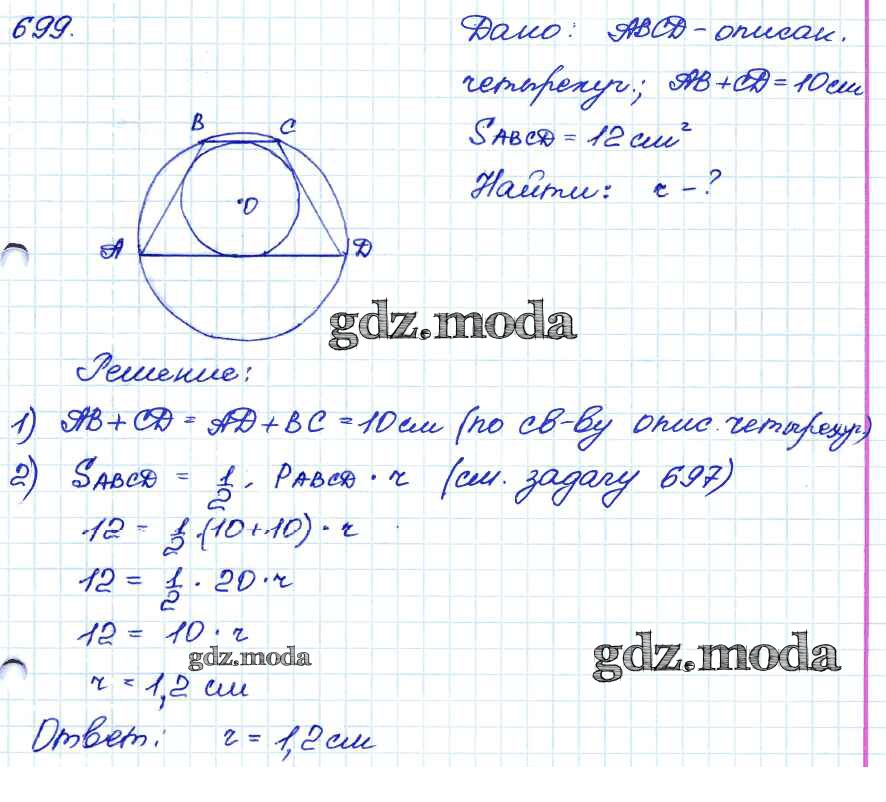 699.
Дано: ABCD - описан.
четырехуг.; AB + CD = 10 см
SABCD = 12 см²
Найти: r - ?
B C
O
A D
gdz.moda
Решение:
1) AB + CD = AD + BC = 10 см (по св-ву опис. четырехуг.)
2) SABCD = 1/2 · PABCD · r (см. задачу 697)
12 = 1/2 · (10 + 10) · r
12 = 1/2 · 20 · r
12 = 10 · r
gdz.moda
gdz.moda
r = 1,2 см
Ответ: r = 1,2 см